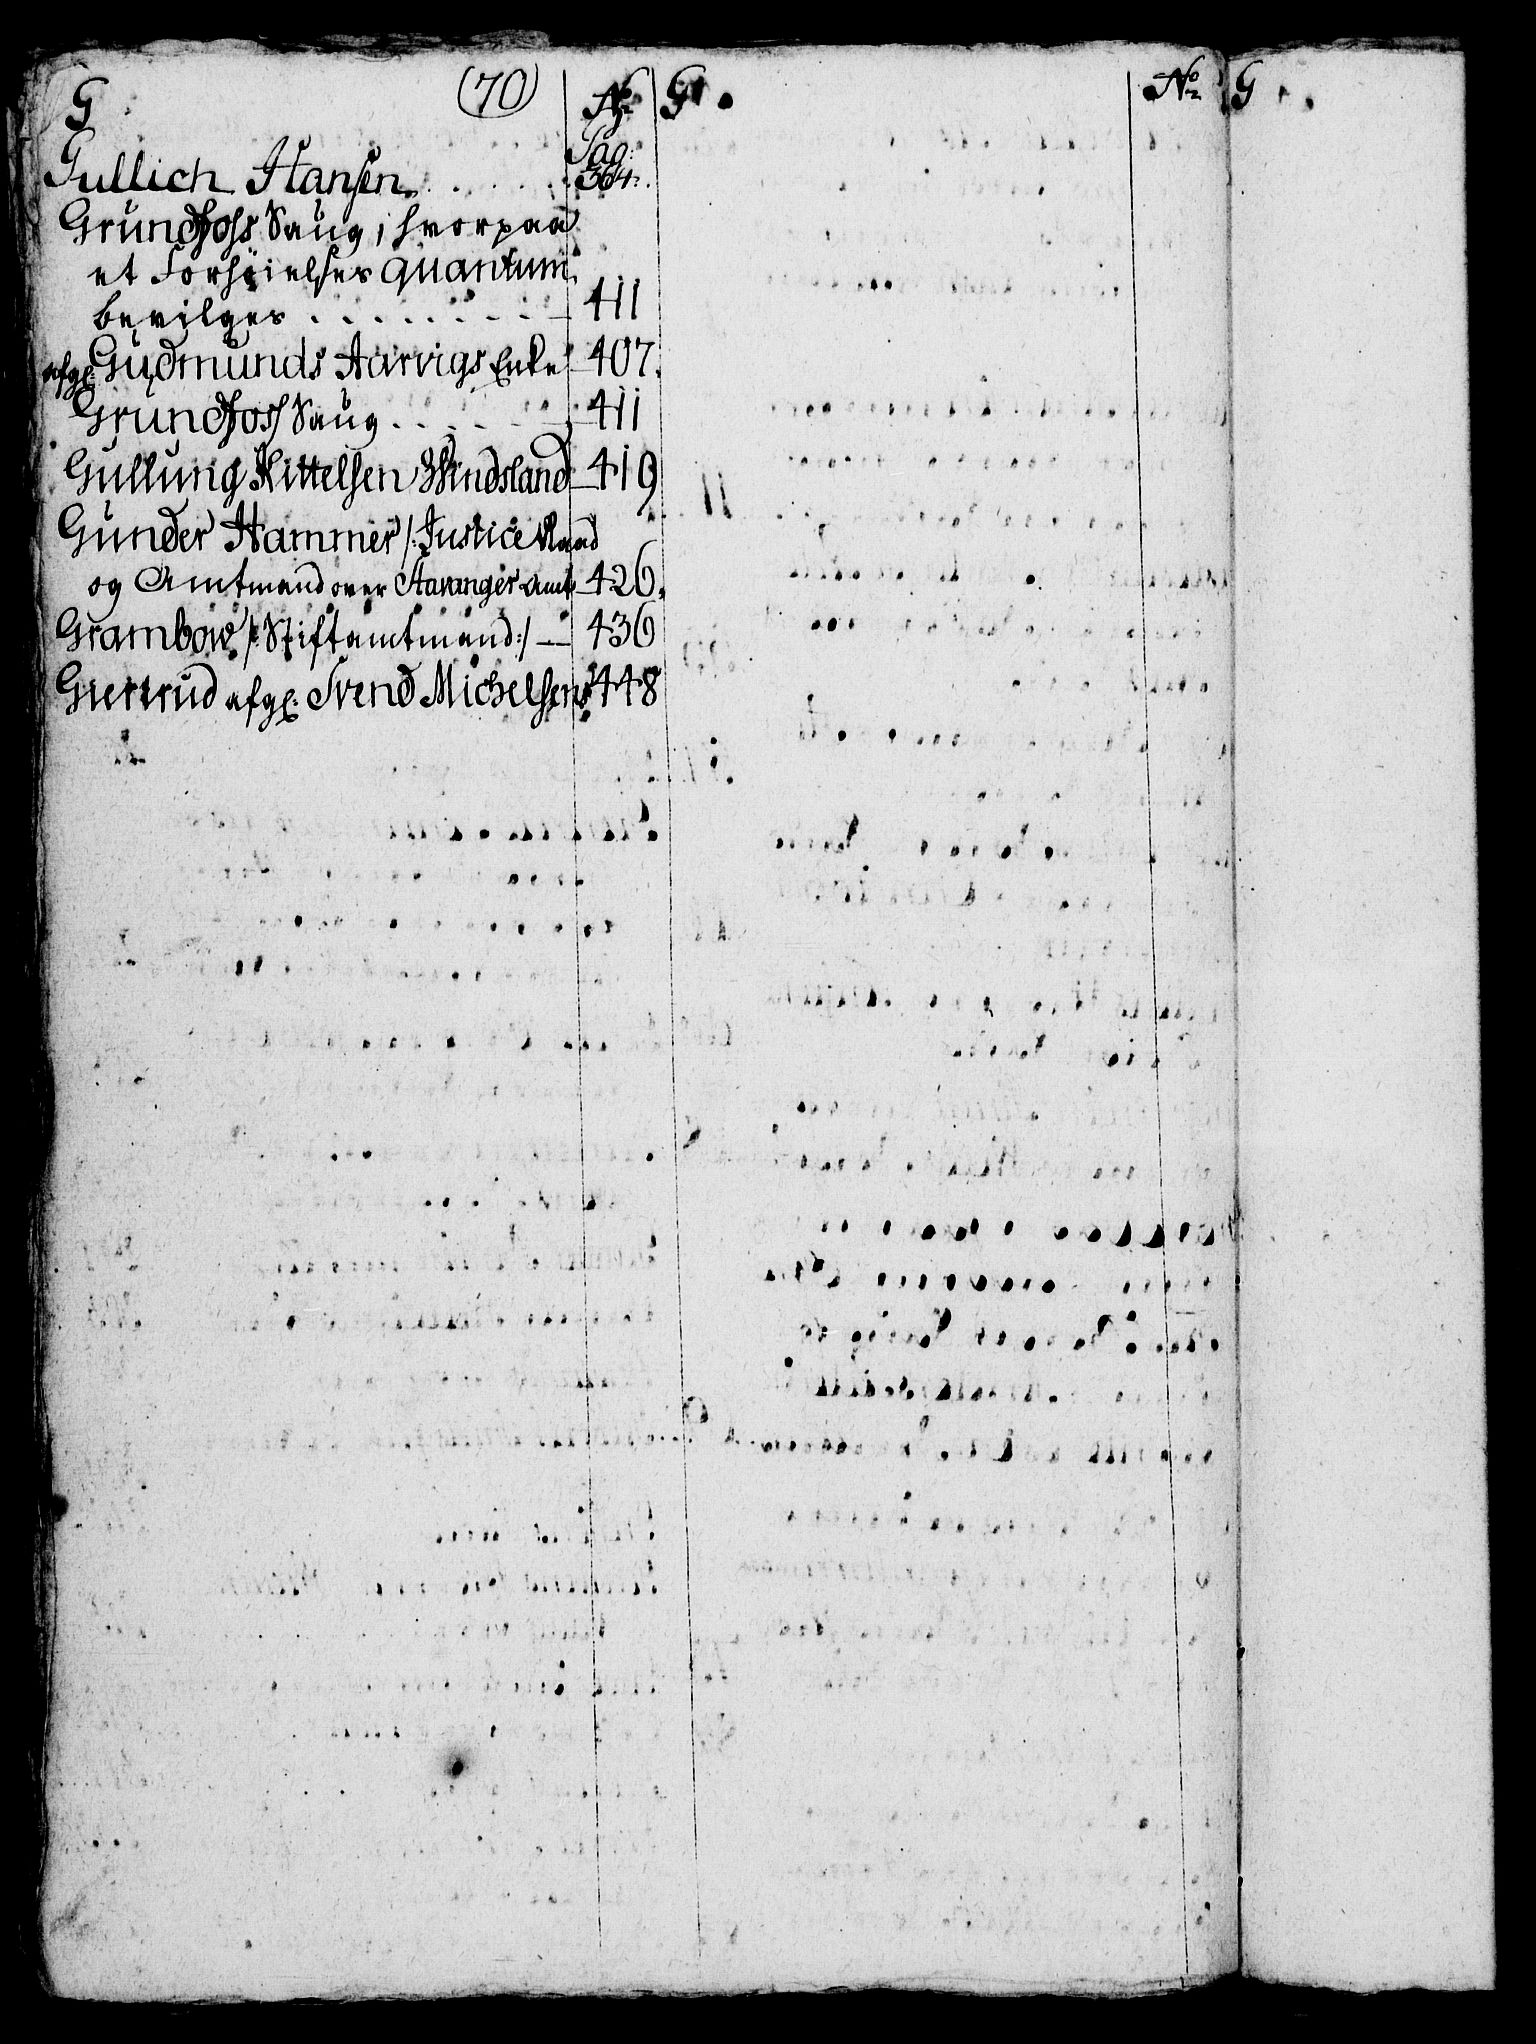 G (70) No G. No G
Pag:
Gullich Hansen. . . . . . . 364.
Grundfoss Saug, hvorpaa
et Forhøielses Quantum
bevilges . . . . . . . . 411
afg: Gudmunds Aarvigs Enke 407.
Grundfoss Saug . . . . . . 411
Gullung Kittelsen Windsland 419
Gunder Hammer /: Justice Raad
og Amtmand over Stavanger Amt 426.
Grambow /: Stiftamtmand :/ — 436
Giertrud afg: Svend Michelsens 448